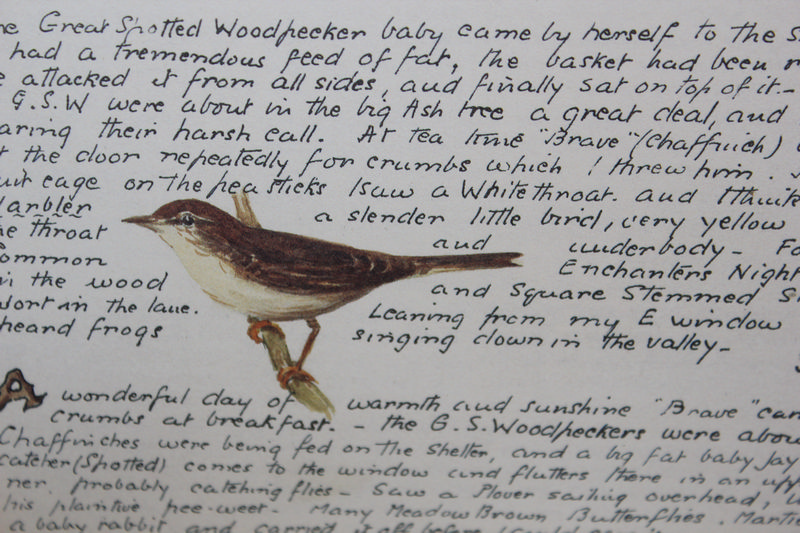 Great Spotted Woodpecker baby came by herself to the
had a tremendous feed of fat, the basket had been
attacked it from all sides, and finally sat on top of it.-
G.S.W were about in the big Ash tree a great deal, and
their harsh call. At tea time "Brave" (Chaffinch)
the door repeatedly for crumbs which I threw him.
cage on the pea sticks I saw a Whitethroat. and I think
a slender little bird, very yellow
throat and underbody-
ommon Enchanters Night
in the wood and Square Stemmed S
wort in the lane. Leaning from my E window
heard frogs singing down in the valley-
A wonderful day of warmth and sunshine "Brave" cam
crumbs at breakfast. - the G.S.Woodpeckers were abou
Chaffinches were being fed on the shelter, and a big fat baby Jay
catcher (Spotted) comes to the window and flutters there in an
ner, probably catching flies- Saw a Plover sailing overhead,
his plaintive pee-weet- Many Meadow Brown Butterflies. Marti
a baby rabbit and carried it off before I could